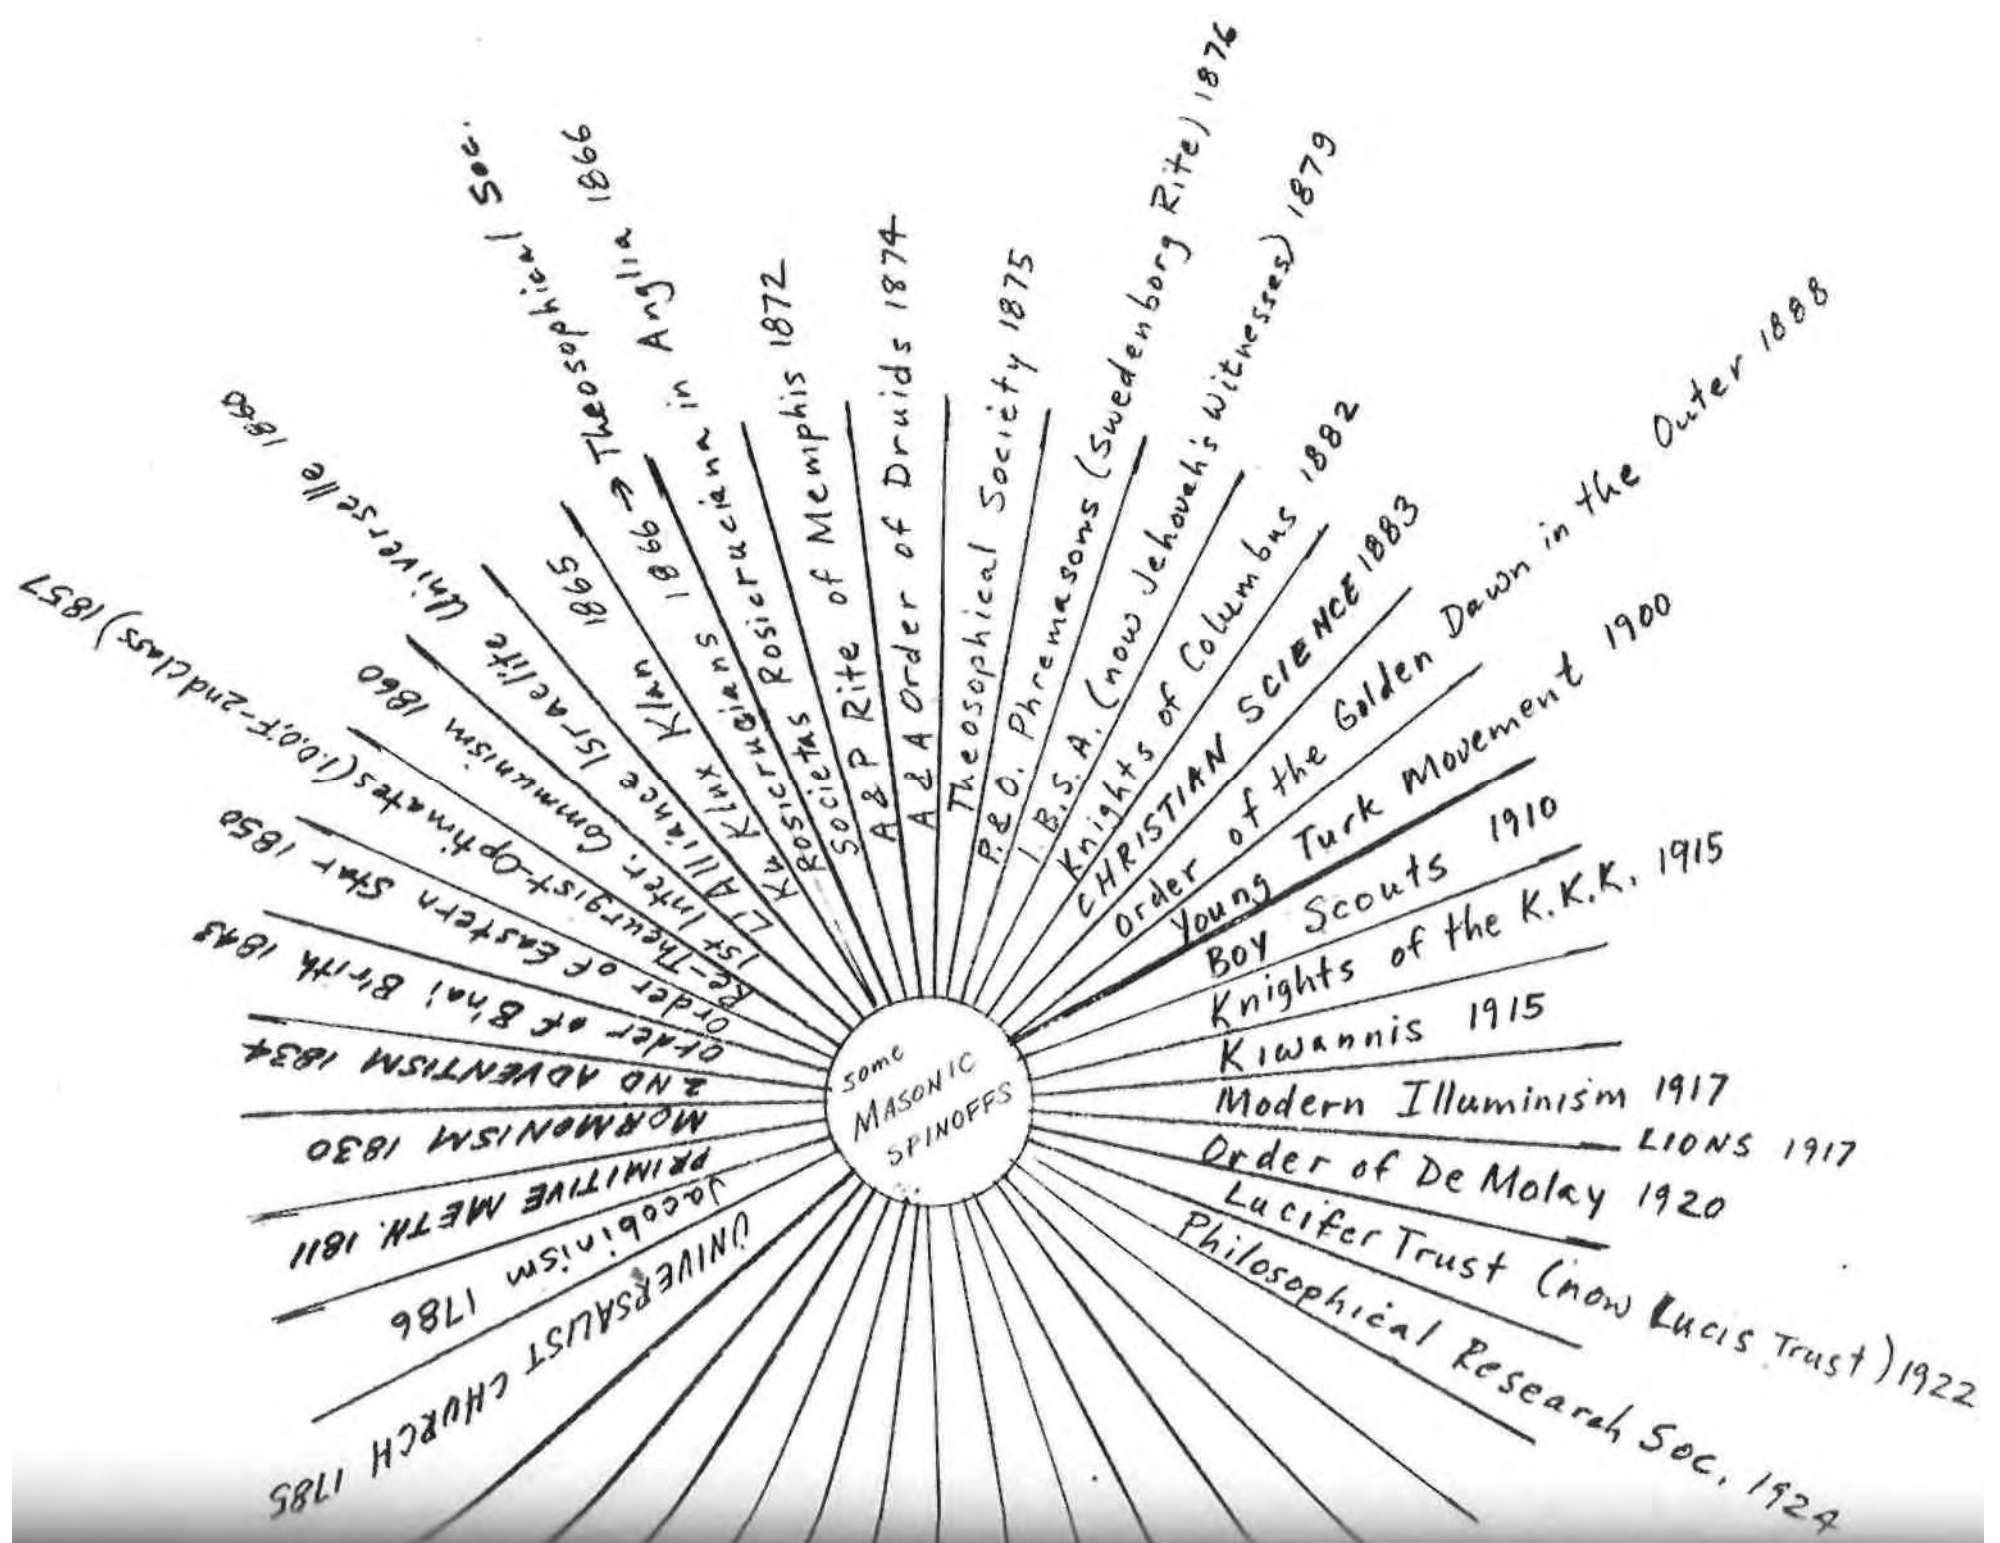 some
MASONIC
SPINOFFS
UNIVERSALIST CHURCH 1785
Jacobinism 1786
PRIMITIVE METH. 1811
MORMONISM 1830
2ND ADVENTISM 1834
Order of B'nai B'rith 1843
Order of Eastern Star 1850
Re-Theurgist-Optimates (I.O.O.F-2nd class) 1857
1st Inter. Communism 1860
L'Alliance Israelite Universelle 1860
Ku Klux Klan 1865
Rosicrucians 1866 → Theosophical Soc.
Societas Rosicruciana in Anglia 1866
A & P Rite of Memphis 1872
A & A Order of Druids 1874
Theosophical Society 1875
P. & O. Phremasons (Swedenborg Rite) 1876
I. B. S. A. (now Jehovah's Witnesses) 1879
Knights of Columbus 1882
CHRISTIAN SCIENCE 1883
Order of the Golden Dawn in the Outer 1888
Young Turk Movement 1900
Boy Scouts 1910
Knights of the K.K.K. 1915
Kiwannis 1915
Modern Illuminism 1917
LIONS 1917
Order of De Molay 1920
Lucifer Trust (now Lucis Trust) 1922
Philosophical Research Soc. 1924